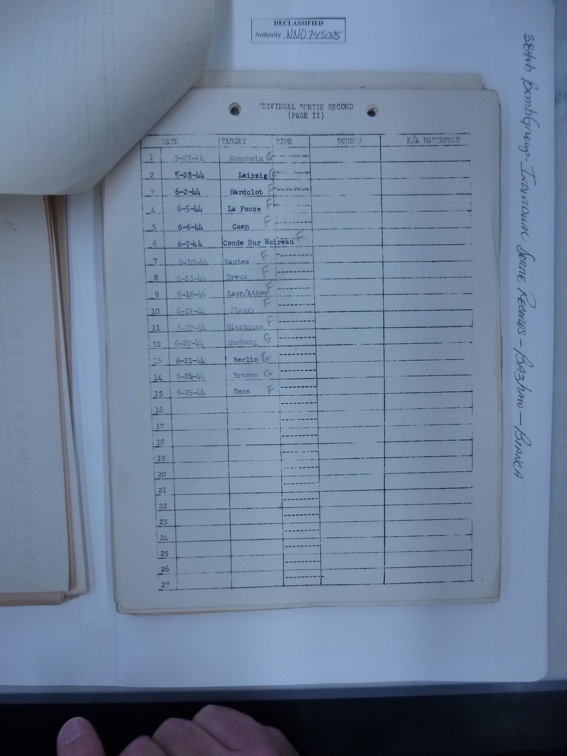 DECLASSIFIED
Authority NND 745005
384th BombGroup - Individual Sortie Records - Bazhaw - Bianca
INDIVIDUAL SORTIE RECORD
(PAGE II)
DATE TARGET TIME E/A DESTROYED
1 5-27-44 Mannheim G
2 5-28-44 Leipzig G
3 6-2-44 Hardelot F
4 6-5-44 La Fosse F
5 6-6-44 Caen F
6 6-7-44 Conde Sur Noireau F
7 6-10-44 Nantes F
8 6-13-44 Dreux F
9 6-16-44 Laon/Athes F
10 F
11 F
12 6-20-44 Harburg G
13 6-21-44 Berlin G
14 6-24-44 Bremen G
15 6-25-44 Sens F
16
17
18
19
20
21
22
23
24
25
26
27